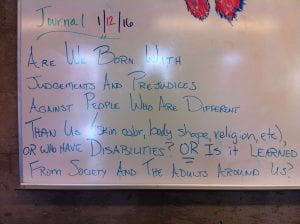 Journal 1/12/16
Are We Born With
Judgements And Prejudices
Against People Who Are Different
Than Us (skin color, body shape, religion, etc),
or who have Disabilities? OR Is it Learned
From Society And The Adults Around Us?